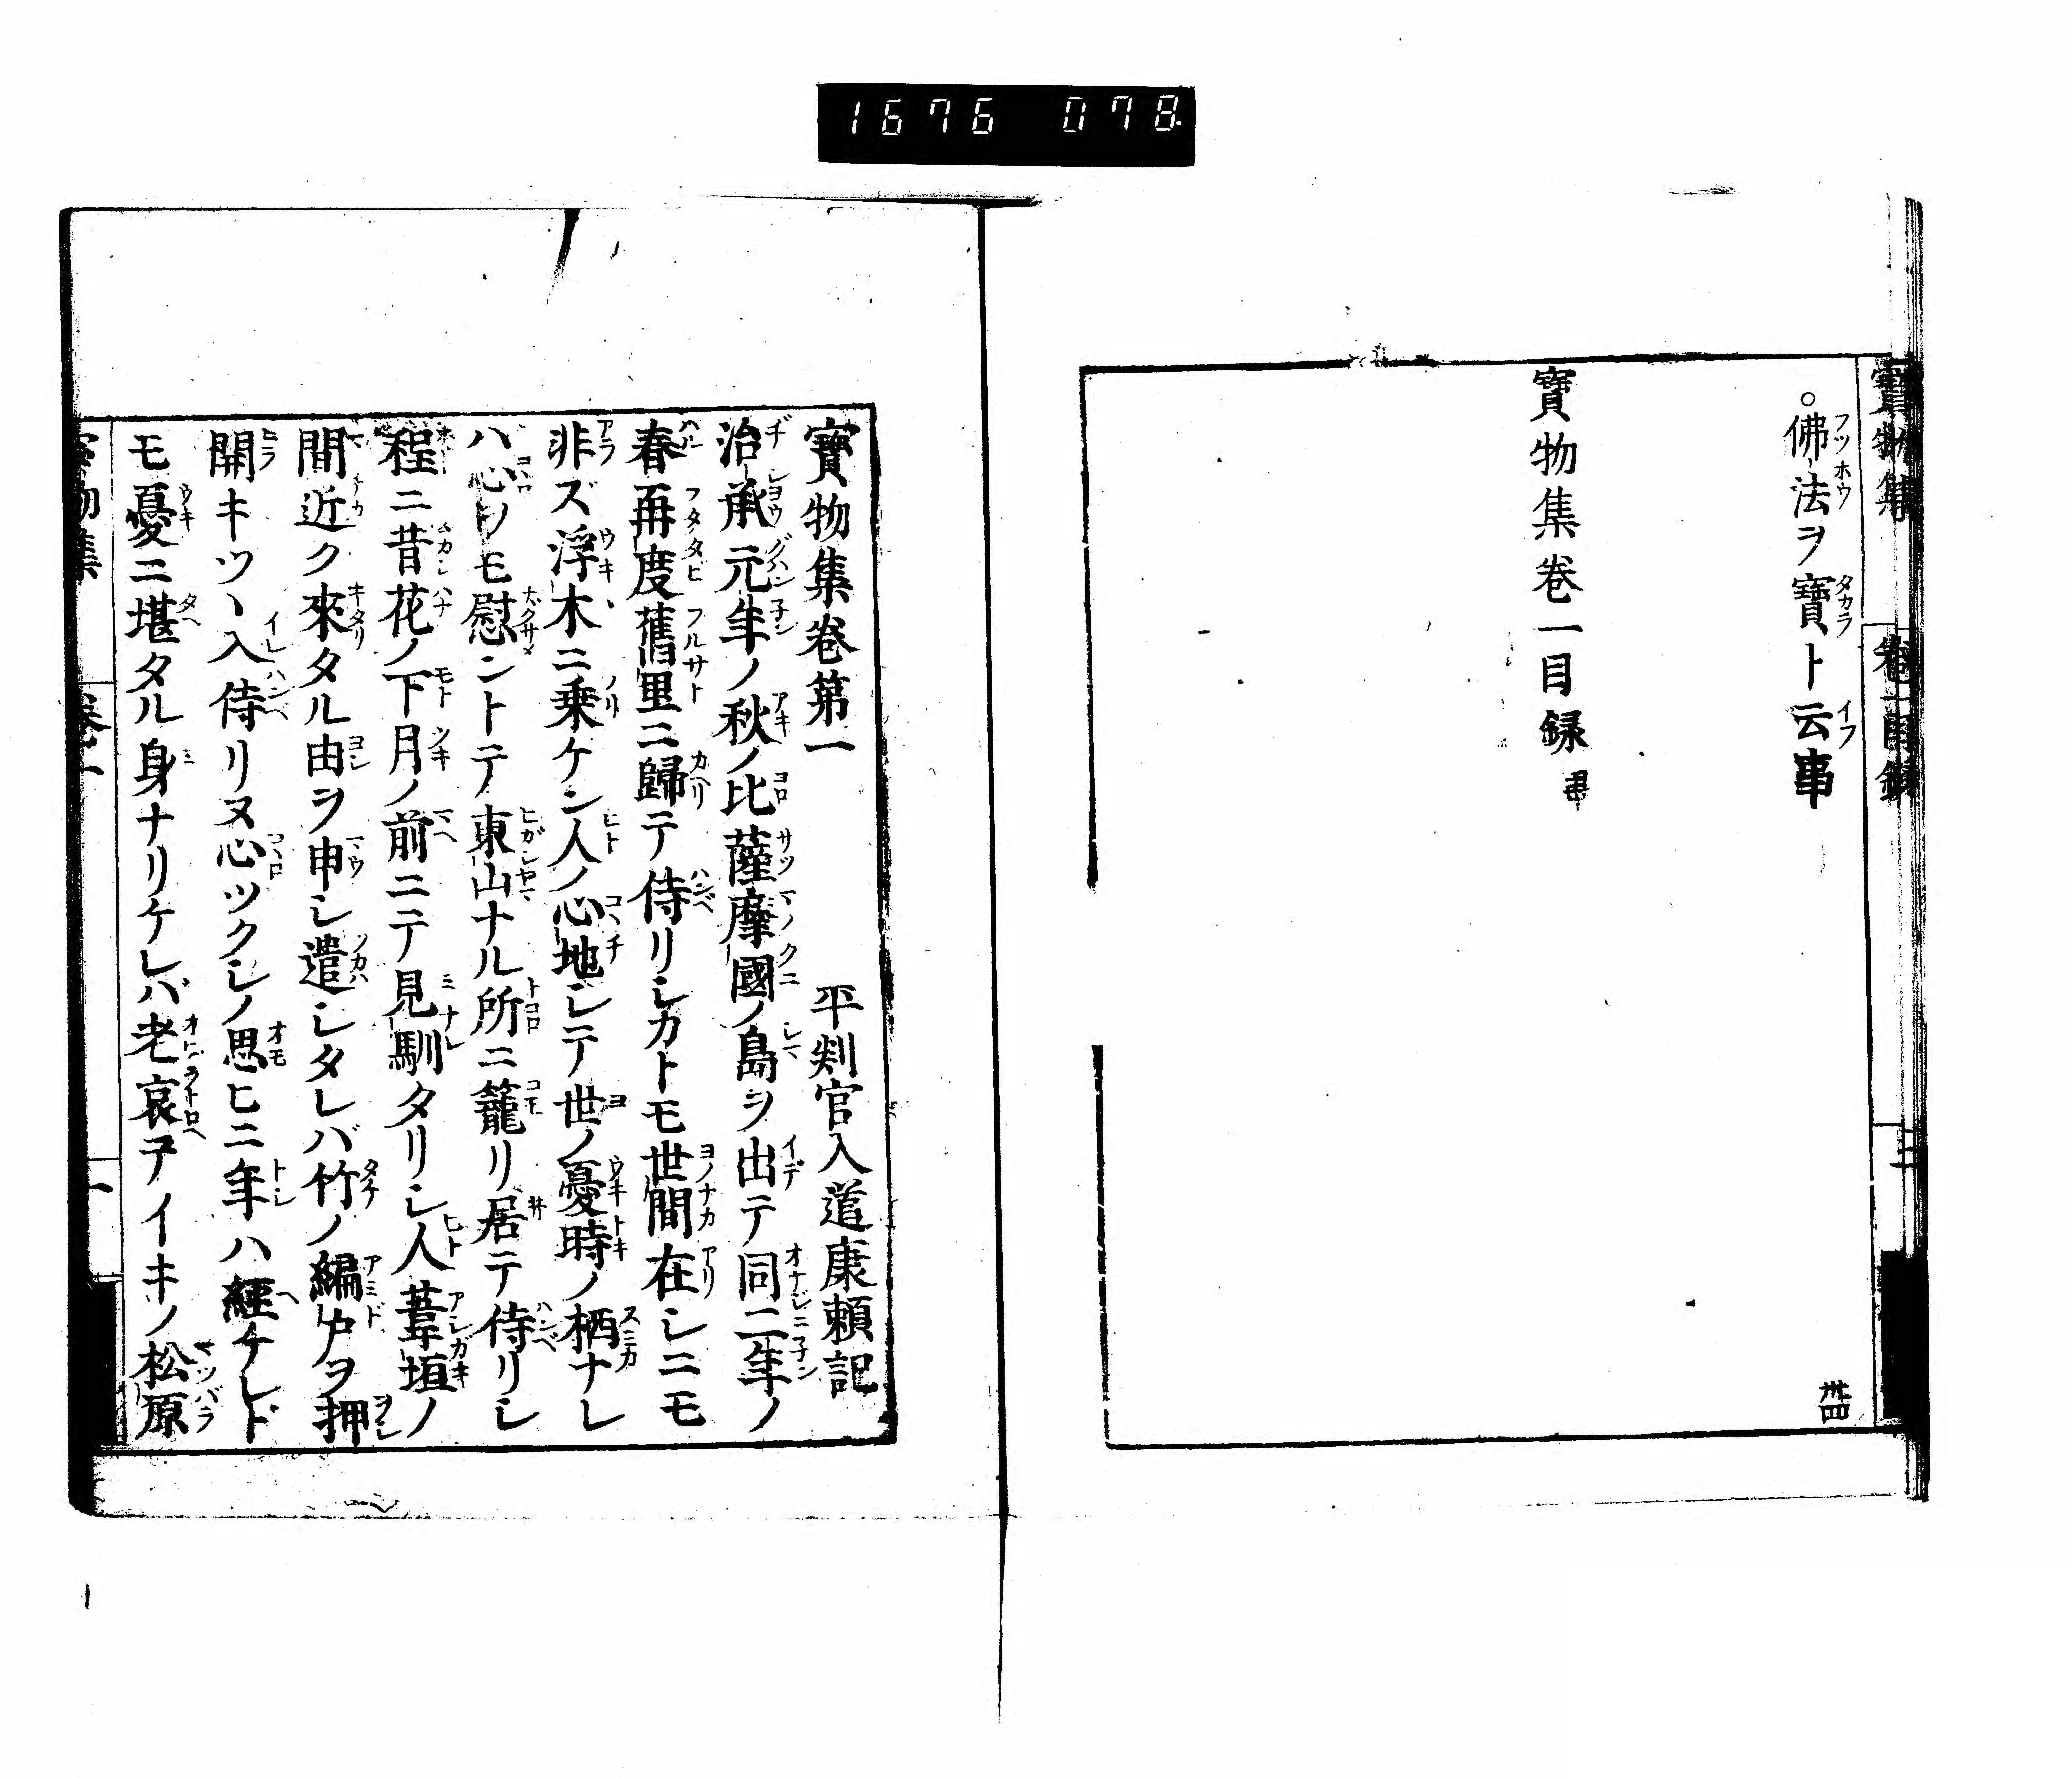 1676 078
。佛法ヲ寶ト云事 丗四
寶物集卷一目録畢
寶物集 卷一目録 二
寶物集卷第一 平判官入道康頼記
治承元年ノ秋ノ比薩摩國ノ島ヲ出テ同二年ノ
春再度舊里ニ歸テ侍リシカトモ世間在シニモ
非ズ浮木ニ乗ケン人ノ心地シテ世ノ憂時ノ栖ナレ
ハ心ノモ慰ントテ東山ナル所ニ籠リ居テ侍リシ
程ニ昔花ノ下月ノ前ニテ見馴タリシ人葦垣ノ
間近ク來タル由ヲ申シ遣シタレバ竹ノ編戸ヲ押
開キツヽ入侍リヌ心ツクシノ思ヒニ年ハ經チレド
モ憂ニ堪タル身ナリケレバ老哀テイキノ松原
寶物集 卷一 一